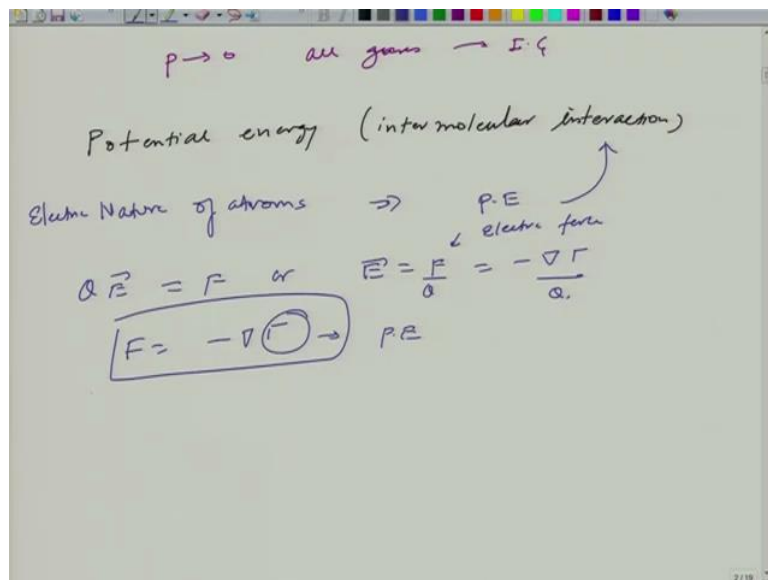 P → 0 all gases → I.G
Potential energy (intermolecular interaction)
Electric Nature of atoms ⇒ P.E
↙ Electric force
Q E⃗ = F or E⃗ = F/Q = -∇Γ/Q.
F = -∇Γ → P.E
2/19